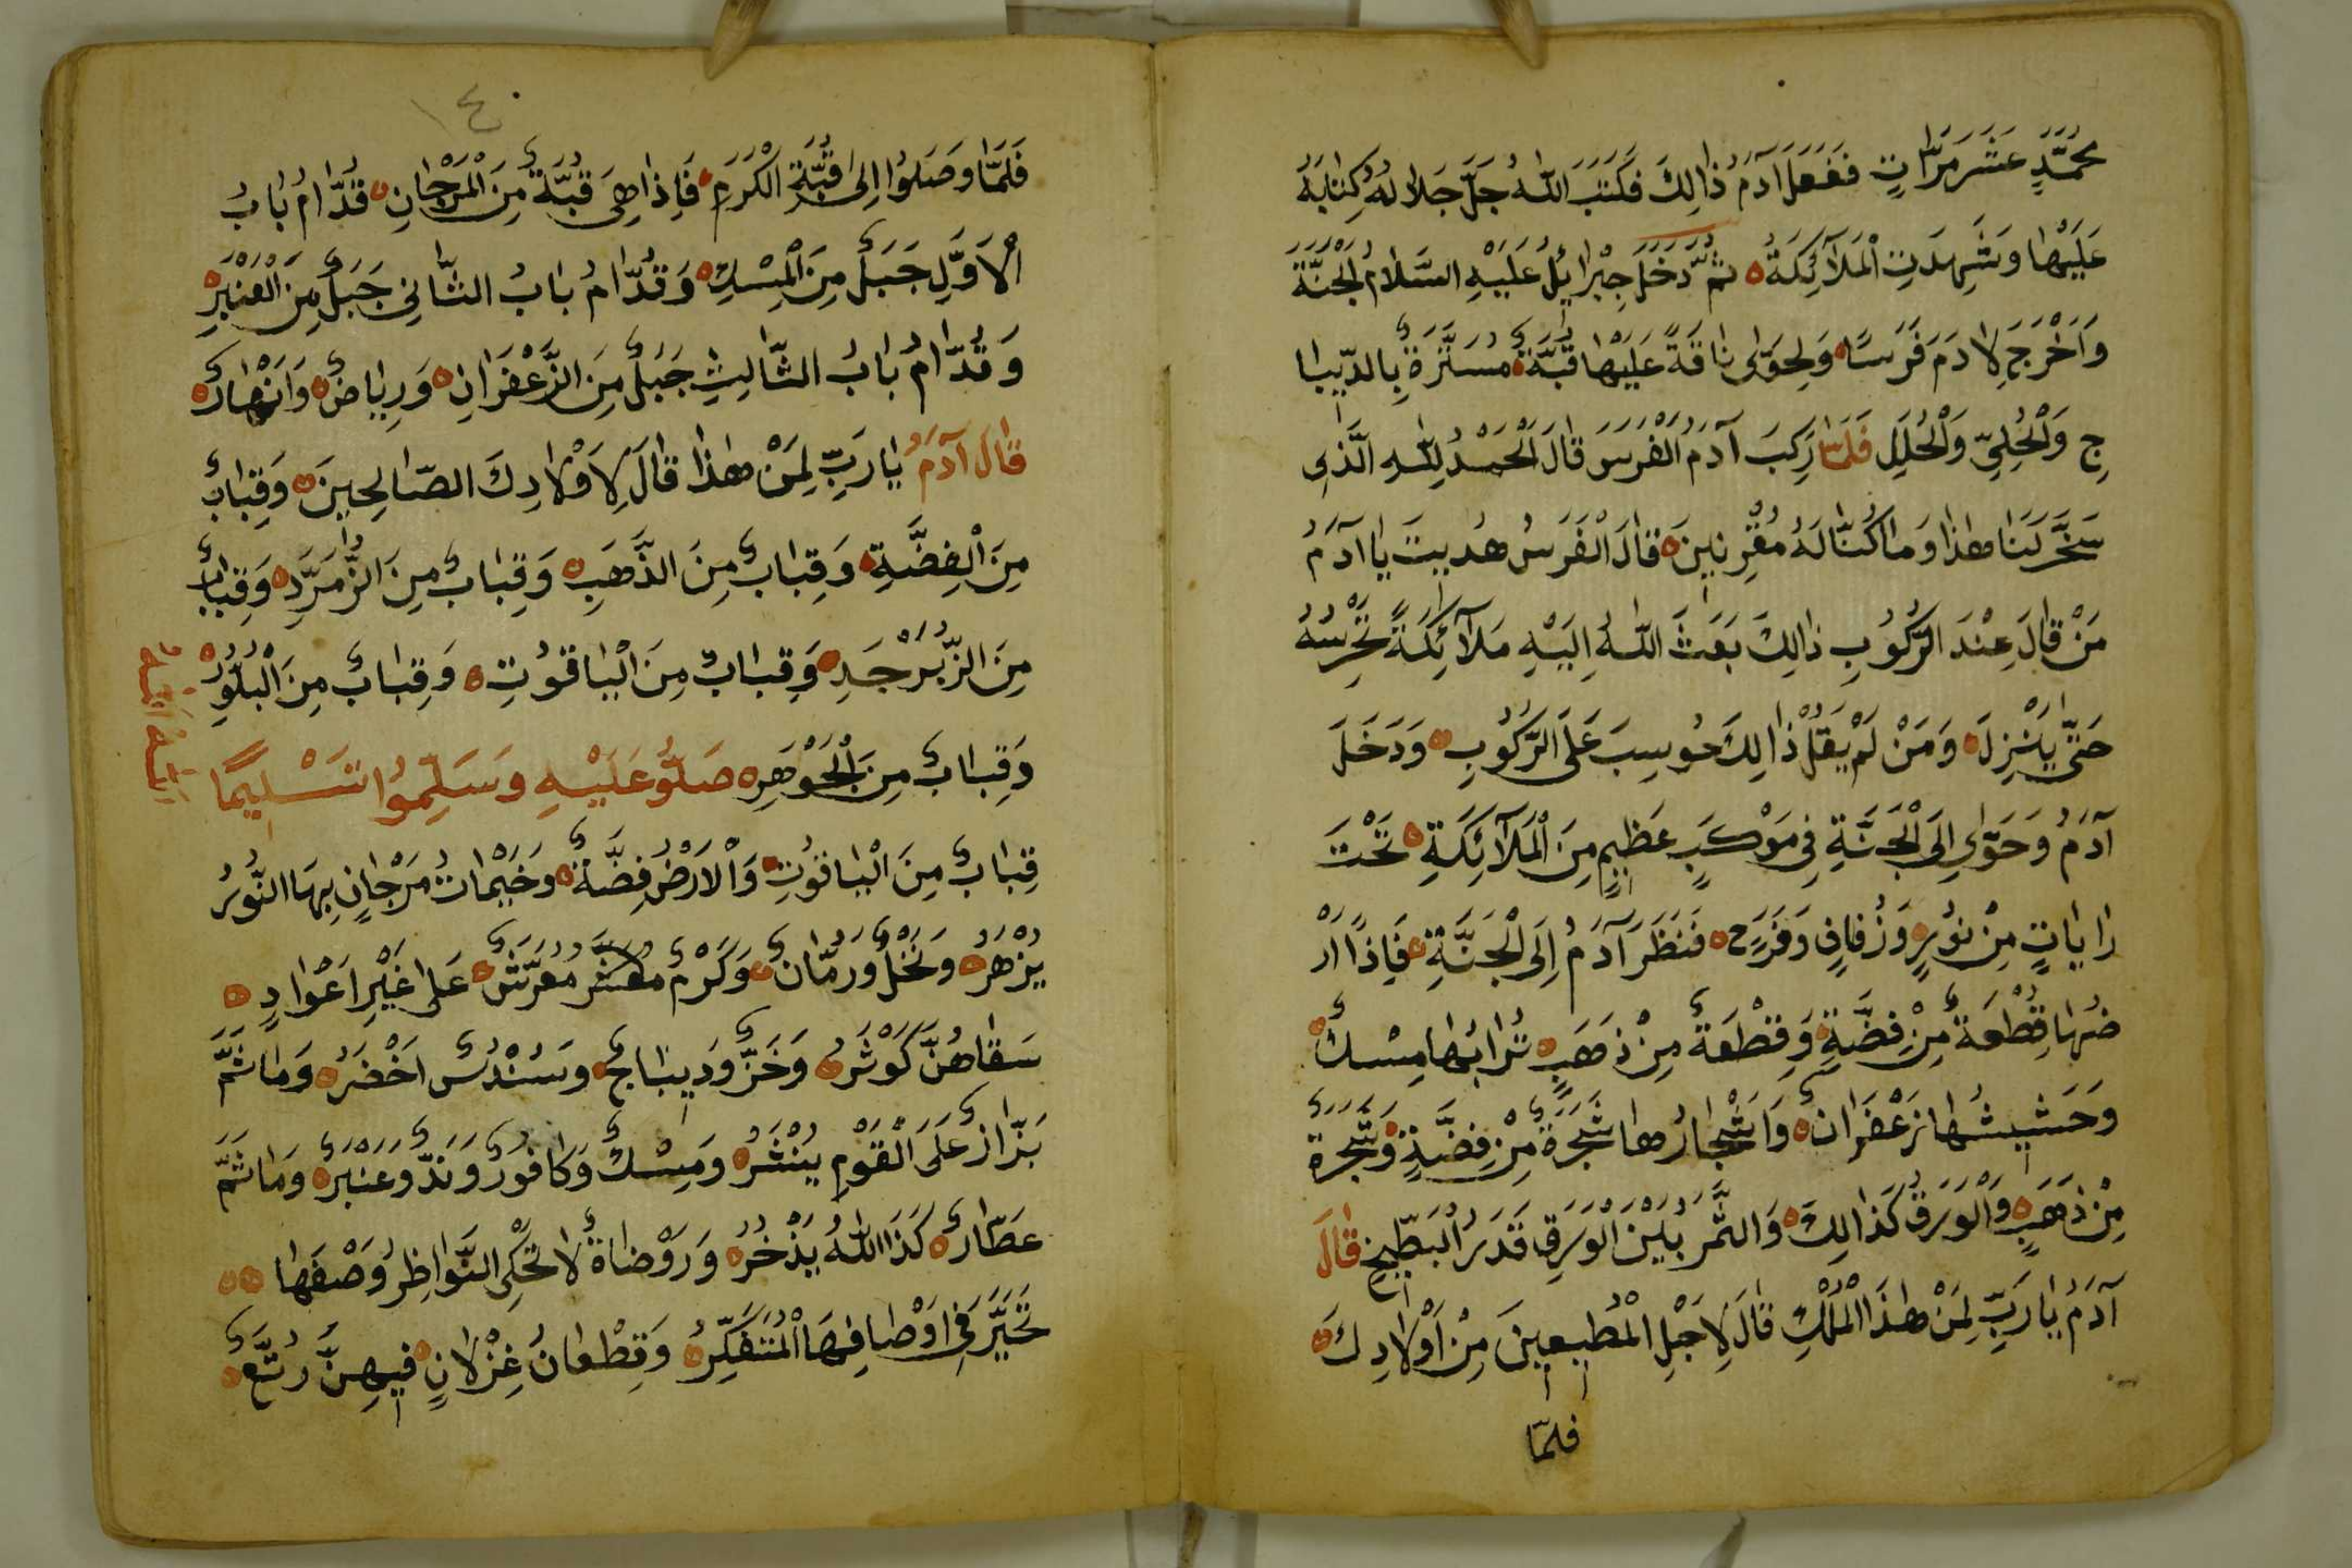 محمَّدٍ عَشَرَ مَرَّاتٍ فَفَعَلَ آدَمُ ذٰالِكَ فَكَتَبَ اللهُ جَلَّ جَلَالُهُ كِتَابَهُ
عَلَيْهَا وَشَهِدَتِ الْمَلَآئِكَةُ ثُمَّ دَخَلَ جِبْرَائِلُ عَلَيْهِ السَّلَامُ الْجَنَّةَ
وَاَخْرَجَ لِاٰدَمَ فَرَسًا وَلِحَوَّى نَاقَةً عَلَيْهَا قُبَّةٌ مُسَتَّرَةٌ بِالدِّيبَا
جِ وَالْحُلِيِّ وَالْحُلَلِ فَلَمَّا رَكِبَ آدَمُ الْفَرَسَ قَالَ الْحَمْدُ لِلّٰهِ الَّذِي
سَخَّرَ لَنَا هٰذَا وَمَا كُنَّا لَهُ مُقْرِنِينَ قَالَ الْفَرَسُ هُدِيتَ يَا آدَمُ
مَنْ قَالَ عِنْدَ الرُّكُوبِ ذٰالِكَ بَعَثَ اللهُ اِلَيْهِ مَلَآئِكَةً تَحْرِسُهُ
حَتَّى يَنْزِلَ وَمَنْ لَمْ يَقُلْ ذٰالِكَ حُوسِبَ عَلَى الرُّكُوبِ وَدَخَلَ
آدَمُ وَحَوَّاى اِلَى الْجَنَّةِ فِي مَوْكَبٍ عَظِيمٍ مِنَ الْمَلَآئِكَةِ تَحْتَ
رَايَاتٍ مِنْ نُورٍ وَزُفَافٍ وَفَرَحٍ فَنَظَرَ آدَمُ اِلَى الْجَنَّةِ فَاِذًا اَرْ
ضُهَا قِطْعَةٌ مِنْ فِضَّةٍ وَقِطْعَةٌ مِنْ ذَهَبٍ تُرَابُهَا مِسْكٌ
وَحَشِيشُهَا زَعْفَرَانٌ وَاَشْجَارُهَا شَجَرَةٌ مِنْ فِضَّةٍ وَشَجَرَةٌ
مِنْ ذَهَبٍ وَالْوَرَقُ كَذَالِكَ وَالثَّمَرُ بَيْنَ الْوَرَقِ قَدَرُ الْبَطِّيخِ قَالَ
آدَمُ يَا رَبِّ لِمَنْ هٰذَا الْمُلْكِ قَالَ لِاَجْلِ الْمُطِيعِينَ مِنْ اَوْلَادِكَ
فلمّا
١٤٠
فَلَمَّا وَصَلُوا اِلَى قُبَّةِ الْكَرَمِ فَاِذَا هِيَ قُبَّةٌ مِنَ الْمَرْجَانِ قُدَّامُ بَابُ
الْاَوَّلِ جَبَلٌ مِنَ الْمِسْكِ وَقُدَّامُ بَابُ الثَّانِي جَبَلٌ مِنَ الْعَنْبَرِ
وَقُدَّامُ بَابُ الثَّالِثِ جَبَلٌ مِنَ الزَّعْفَرَانِ وَرِيَاضٌ وَاَنْهَارٌ
قَالَ آدَمُ يَا رَبِّ لِمَنْ هٰذَا قَالَ لِاَوْلَادِكَ الصَّالِحِينَ وَقِبَابٌ
مِنَ الْفِضَّةِ وَقِبَابٌ مِنَ الذَّهَبِ وَقِبَابٌ مِنَ الزُّمَرَّدِ وَقِبَابٌ
مِنَ الزَّبَرْجَدِ وَقِبَابٌ مِنَ الْيَاقُوتِ وَقِبَابٌ مِنَ الْبُلُورِ
وَقِبَابٌ مِنَ الْجَوْهَرِ صَلُّو عَلَيْهِ وَسَلِّمُوا تَسْلِيمًا
قِبَابٌ مِنَ الْيَاقُوتِ وَالْاَرْضُ فِضَّةٌ وَخَيْمَاتُ مَرْجَانٍ بِهَا النُّورُ
يَزْهَرُ وَنَخْلٌ وَرُمَّانٌ وَكَرْمٌ مُعَرَّشٌ عَلٰى غَيْرِ اَعْوَادٍ
سَقَاهُنَّ كَوْثَرُ وَخَزٌّ وَدِيبَاجٌ وَسُنْدُسٌ اَخْضَرُ وَمَا ثَمَّ
بَزَّازٌ عَلَى الْقَوْمِ يَنْشَرُ وَمِسْكٌ وَكَافُورٌ وَنَدٌّ وَعَنْبَرٌ وَمَا ثَمَّ
عَطَّارٌ كَذَا اللهُ يَذْخُرُ وَرَوْضَاةٌ لَا تَحْكِى النَّوَاظِرُ وَصْفَهَا
تَحَيَّرَ فِي اَوْصَافِهَا الْمُتَفَكِّرُ وَقِطْعَانُ غِزْلَانٍ فِيهِنَّ رُتَّعٌ